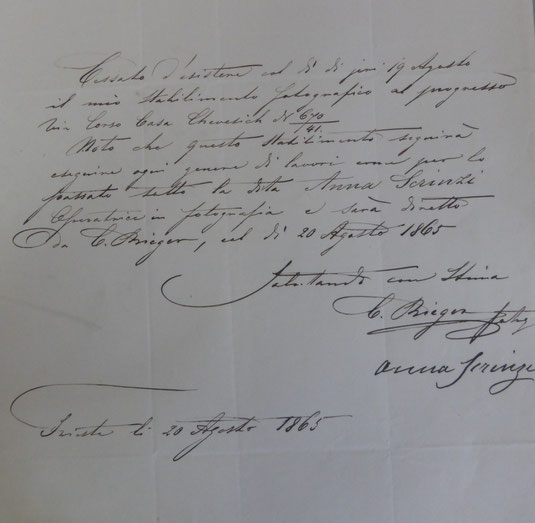 Cessato d'esistere col dì di jeri 19 Agosto
il mio Stabilimento fotografico al progresso
Via Corso Casa Chevesich N 670/41.
Noto che questo Stabilimento seguirà
eseguire ogni genere di lavori come per lo
passato sotto la dita Anna Scrinzi
Operatrice in fotografia e sarà diretto
da C. Rieger, col dì 20 Agosto 1865
Salutando con Stima
C. Rieger fotog
Anna Scrinzi
Trieste li 20 Agosto 1865